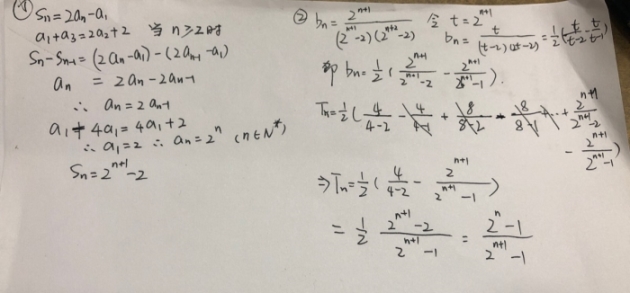 ① Sn=2an-a1
a1+a3=2a2+2 当 n≥2时
Sn-Sn-1=(2an-a1)-(2an-1-a1)
an = 2an-2an-1
∴ an=2an-1
a1+4a1=4a1+2
∴a1=2 ∴an=2^n (n∈N*)
Sn=2^(n+1)-2
② bn=2^(n+1)/((2^(n+1)-2)(2^(n+2)-2)) 令 t=2^(n+1)
bn=t/((t-2)(2t-2))=1/2(t/(t-2)-t/(t-1))
即 bn=1/2(2^(n+1)/(2^(n+1)-2)-2^(n+1)/(2^(n+1)-1)).
Tn=1/2(4/(4-2)-4/(4-1)+8/(8-2)-8/(8-1)+··+2^(n+1)/(2^(n+1)-2)
-2^(n+1)/(2^(n+1)-1))
⇒Tn=1/2(4/(4-2)-2^(n+1)/(2^(n+1)-1))
=1/2 (2^(n+1)-2)/(2^(n+1)-1)=(2^n-1)/(2^(n+1)-1)